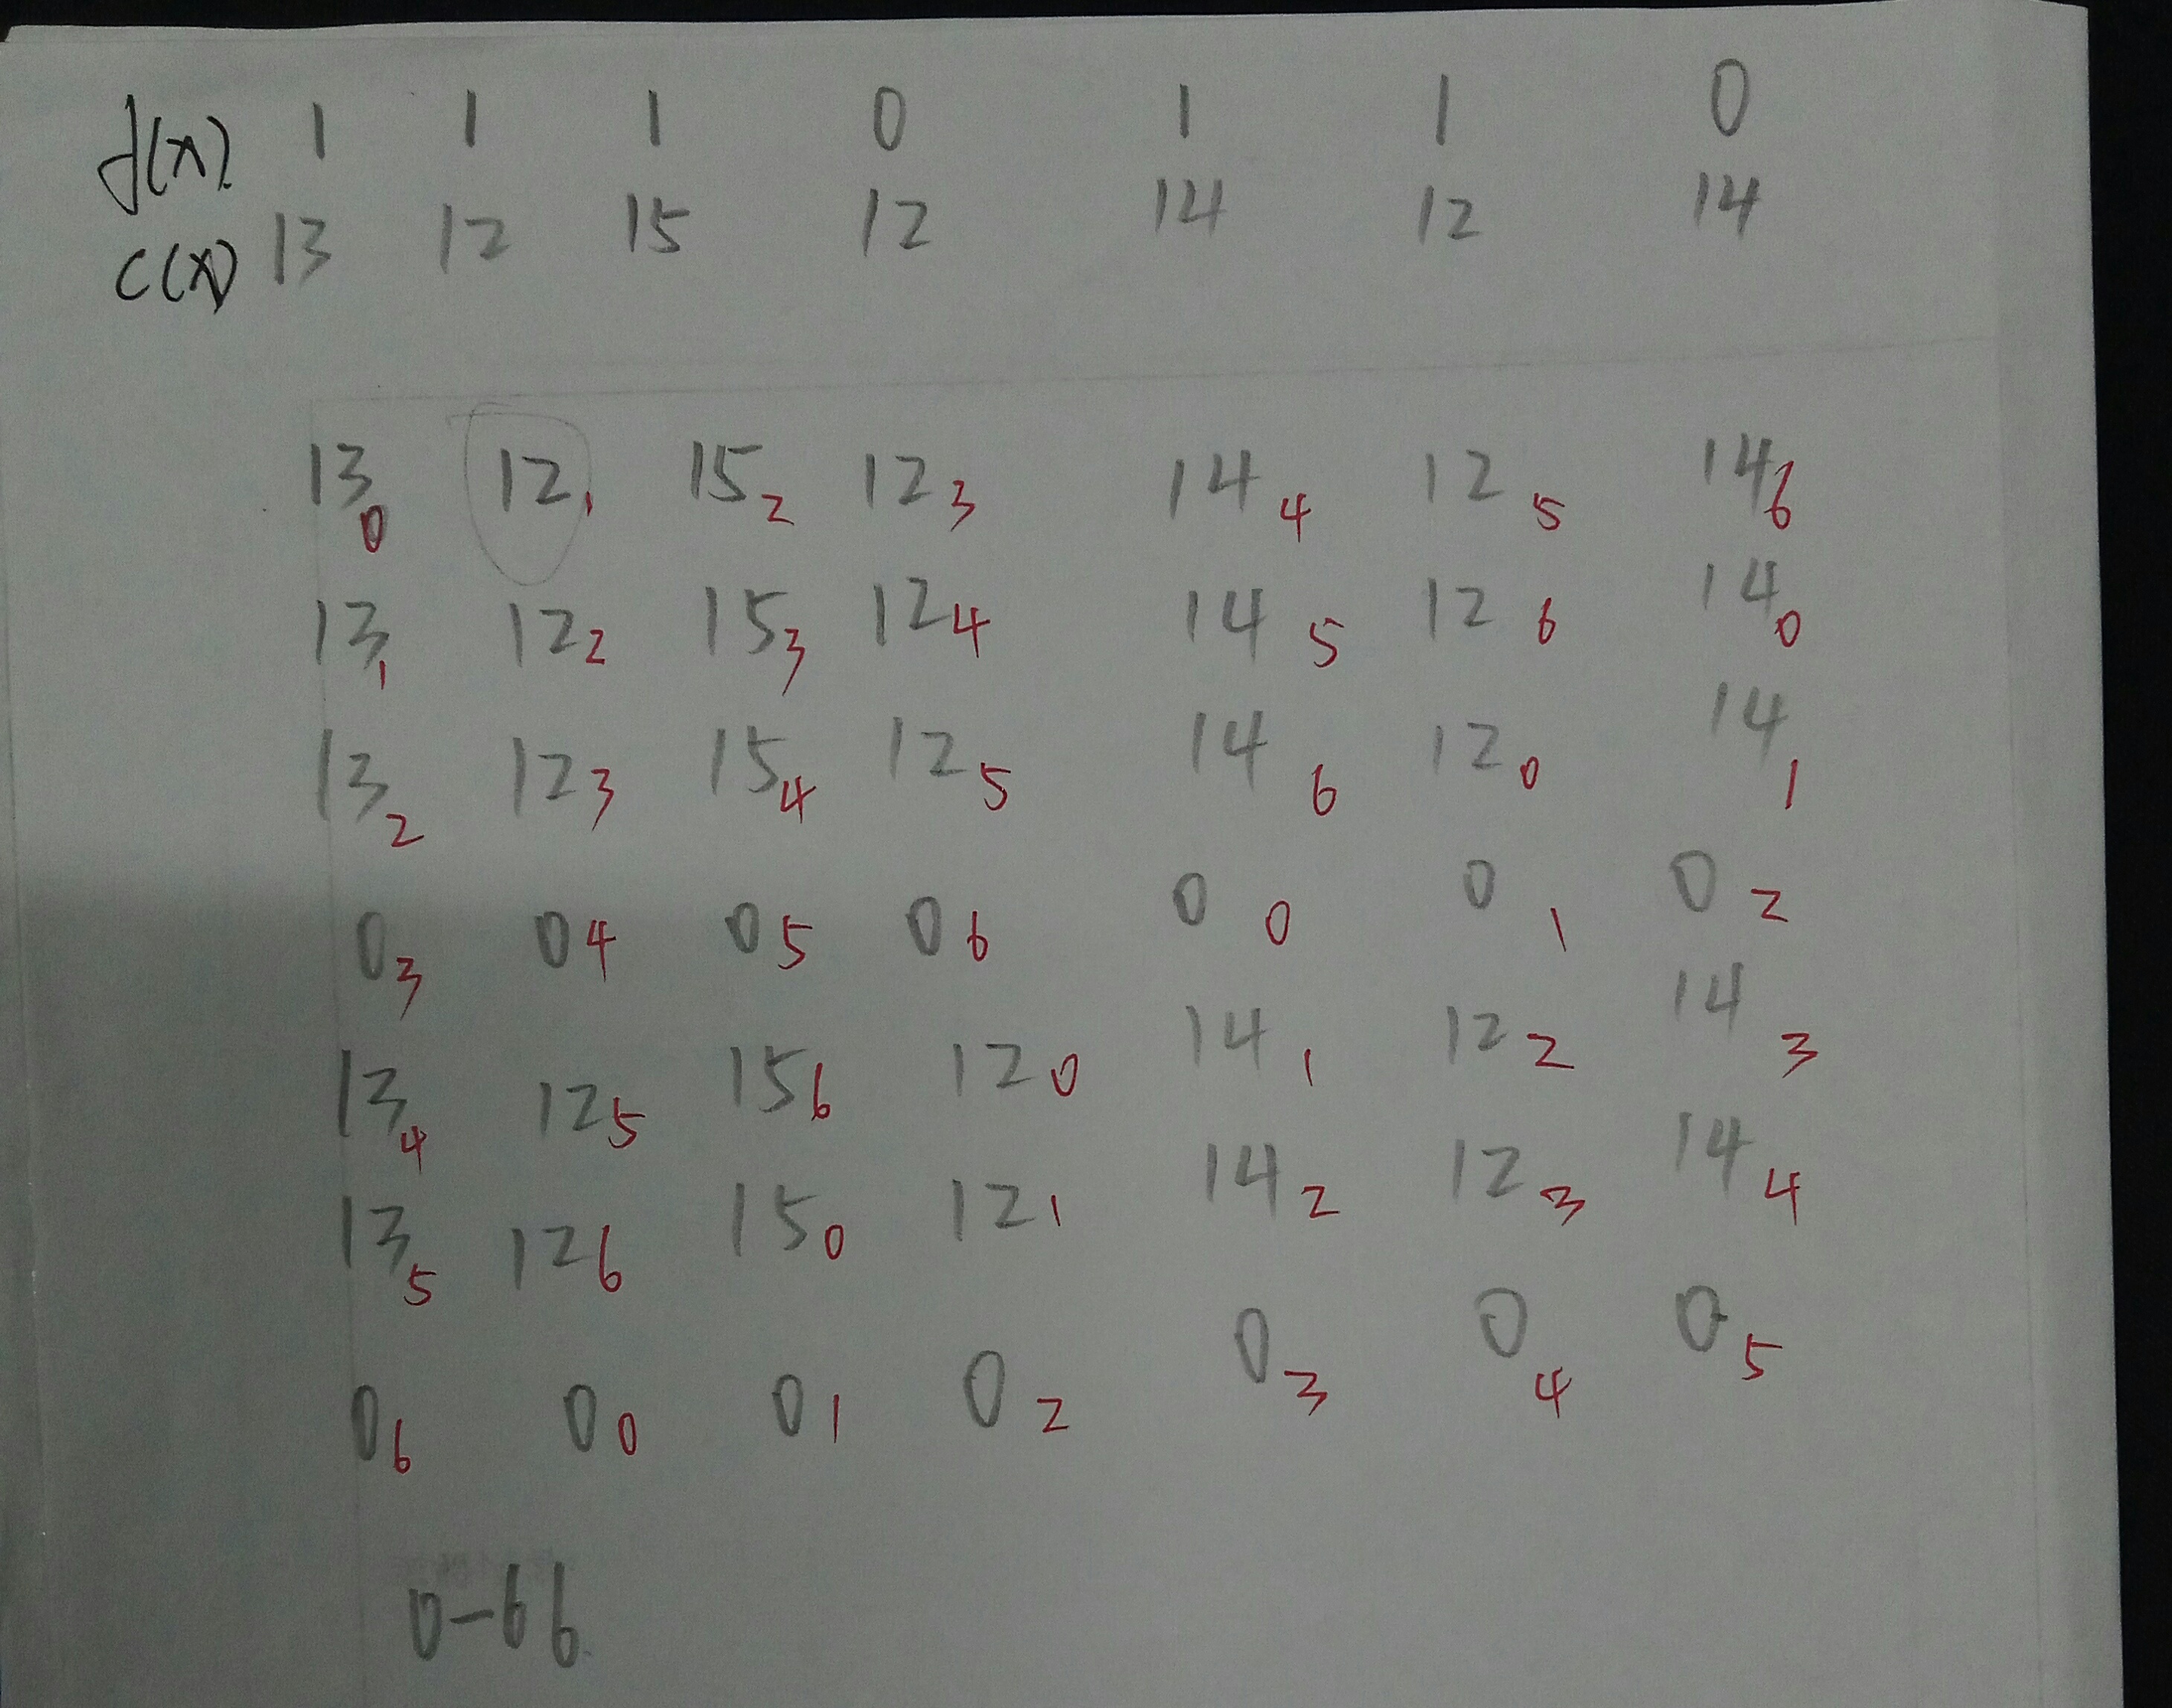 f(x) 1 1 1 0 1 1 0
c(x) 13 12 15 12 14 12 14
13 0 12 1 15 2 12 3 14 4 12 5 14 6
13 1 12 2 15 3 12 4 14 5 12 6 14 0
13 2 12 3 15 4 12 5 14 6 12 0 14 1
0 3 0 4 0 5 0 6 0 0 0 1 0 2
13 4 12 5 15 6 12 0 14 1 12 2 14 3
13 5 12 6 15 0 12 1 14 2 12 3 14 4
0 6 0 0 0 1 0 2 0 3 0 4 0 5
0-66